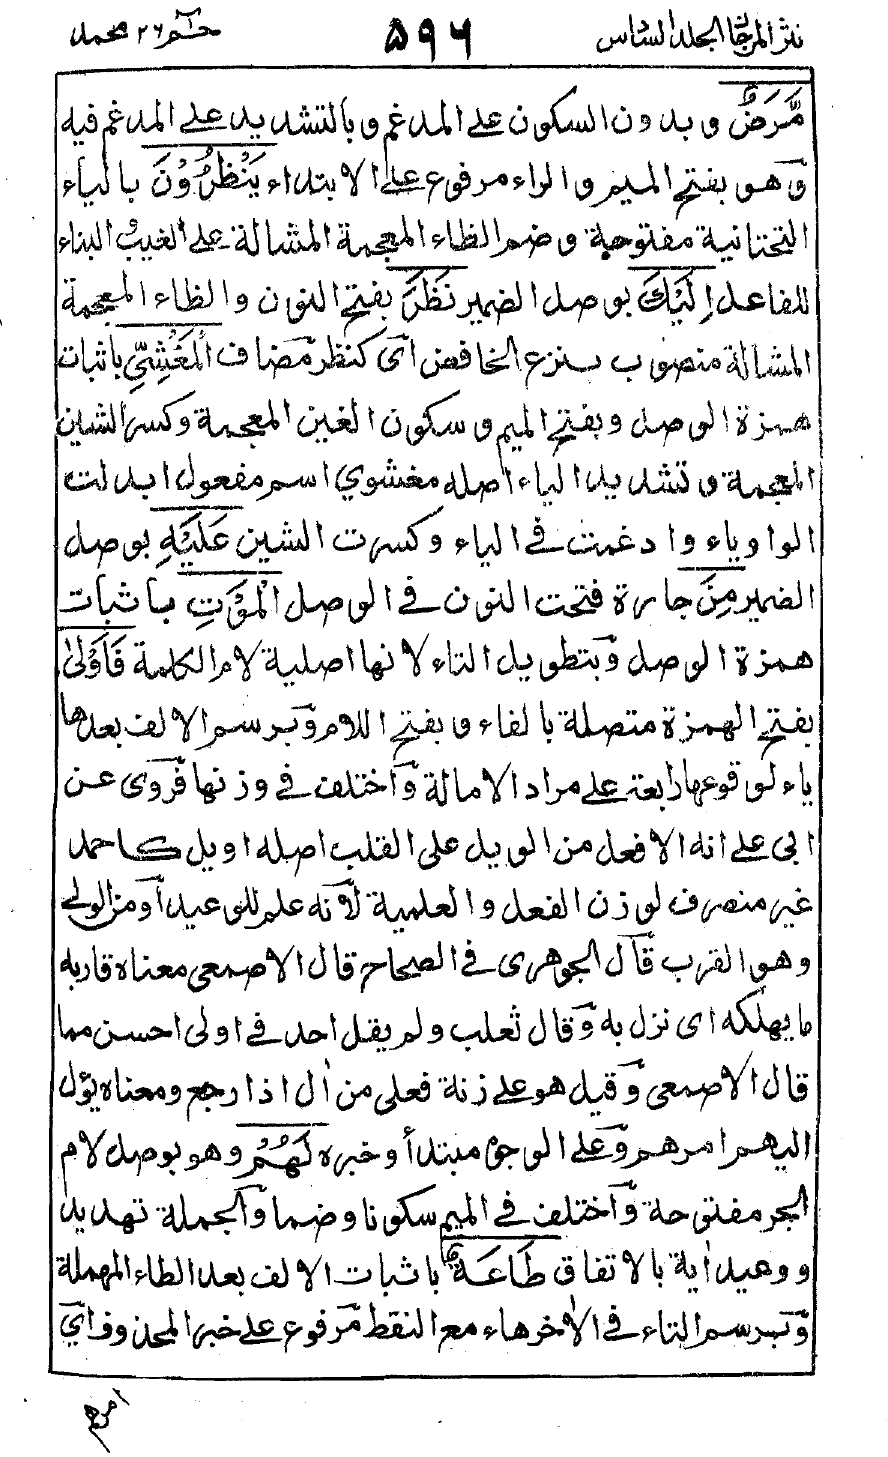 نثر المرجان المجلد السادس ٥٩٦ حٰمٓ ٢٦ محمد
مَّرَضٌ وبدون السكون على المدغم وبالتشديد على المدغم فيه
وهو بفتح الميم والراء مرفوع على الابتداء يَنْظُرُوْنَ بالياء
التحتانية مفتوحة وضم الظاء المعجمة المشالة على الغيب والبناء
للفاعل اِلَيْكَ بوصل الضمير نَظَرَ بفتح النون والظاء المعجمة
المشالة منصوب بنزع الخافض اى كنظر مضاف الْمَغْشِيِّ باثبات
همزة الوصل وبفتح الميم وسكون الغين المعجمة وكسر الشين
المعجمة وتشديد الياء اصله مغشوي اسم مفعول ابدلت
الواو ياء وادغمت فى الياء وكسرت الشين عَلَيْهِ بوصل
الضمير مِنَ جارة فتحت النون فى الوصل الْمَوْتِ باثبات
همزة الوصل وبتطويل التاء لانها اصلية لام الكلمة فَاَوْلٰى
بفتح الهمزة متصلة بالفاء وبفتح اللام وبرسم الالف بعدها
ياء لوقوعها رابعة على مراد الامالة واختلف فى وزنها فروى عن
ابى على انه الافعل من الويل على القلب اصله اويل كاحمد
غير منصرف لوزن الفعل والعلمية لانه علم للوعيد أو من الولى
وهو القرب قال الجوهرى فى الصحاح قال الاصمعى معناه قاربه
ما يهلكه اى نزل به وقال ثعلب ولم يقل احد فى اولى احسن مما
قال الاصمعى وقيل هو على زنة فعلى من اٰل اذا رجع ومعناه يؤل
اليهم امرهم وعلى الوجوه مبتدأ وخبره لَهُمْ وهو بوصل لام
الجر مفتوحة واختلف فى الميم سكونا وضما والجملة تهديد
ووعيد اٰية بالاتفاق طَاعَةٌ باثبات الالف بعد الطاء المهملة
وبرسم التاء فى الاٰخر هاء مع النقط مرفوع على خبر المحذوف اى
امرهم